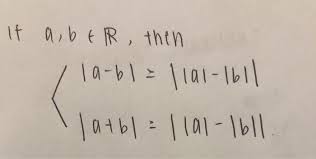 If a, b ∈ ℝ, then
|a-b| ≥ ||a| - |b||
|a+b| ≥ ||a| - |b||.